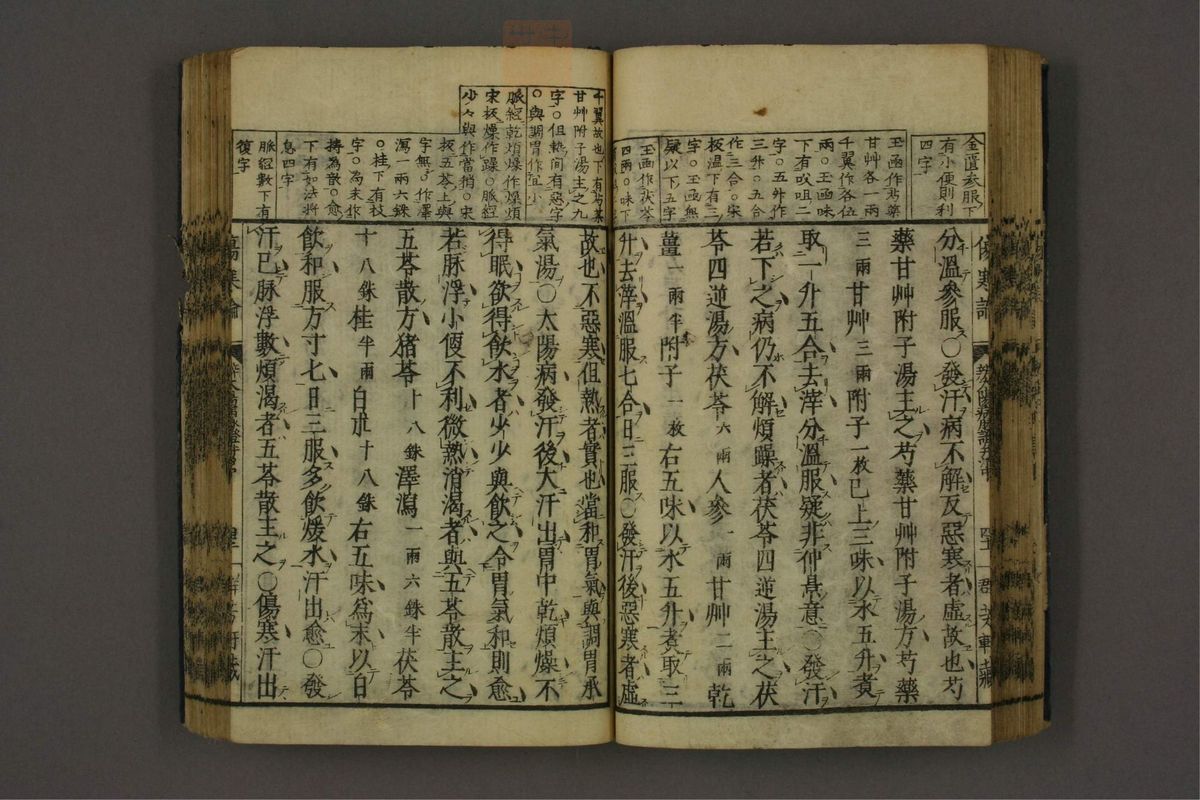 金匱參服下
有小便則利
四字
玉函作芍藥
甘艸各一兩
千翼作各伍
兩○玉函味
下有㕮咀二
字○五外作
三升○五合
作三合○宋
板溫下有三
字○玉函無
疑以下五字
玉函作茯苓
四兩○味下
分溫參服○發汗病不解反惡寒者虛故也芍
藥甘艸附子湯主之芍藥甘艸附子湯方芍藥
三兩甘艸三兩附子一枚已上三味以水五升煑
取一升五合去滓分溫服疑非仲景意○發汗
若下之病仍不解煩躁者茯苓四逆湯主之茯
苓四逆湯方茯苓六兩人參一兩甘艸二兩乾
薑一兩半附子一枚右五味以水五升煑取三
升去滓溫服七合日三服○發汗後惡寒者虛
傷寒論
千翼故也下有芍藥
甘艸附子湯主之九
字○但熱間有惡字
○與調胃作宜小
脈經乾煩燥作燥煩
宋板燥作躁○脈經
少々與作當稍○宋
板五苓上與
字無○作澤
瀉一兩六銖
○桂下有枝
字○為末作
擣為散○愈
下有如法將
息四字
脈經數下有
復字
故也不惡寒但熱者實也當和胃氣與調胃承
氣湯○太陽病發汗後大汗出胃中乾煩燥不
得眠欲得飮水者少少與飮之令胃氣和則愈
若脉浮小便不利微熱消渴者與五苓散主之
五苓散方猪苓十八銖澤瀉一兩六銖半茯苓
十八銖桂半兩白朮十八銖右五味爲末以白
飮和服方寸七日三服多飮煖水汗出愈○發
汗已脉浮數煩渴者五苓散主之○傷寒汗出